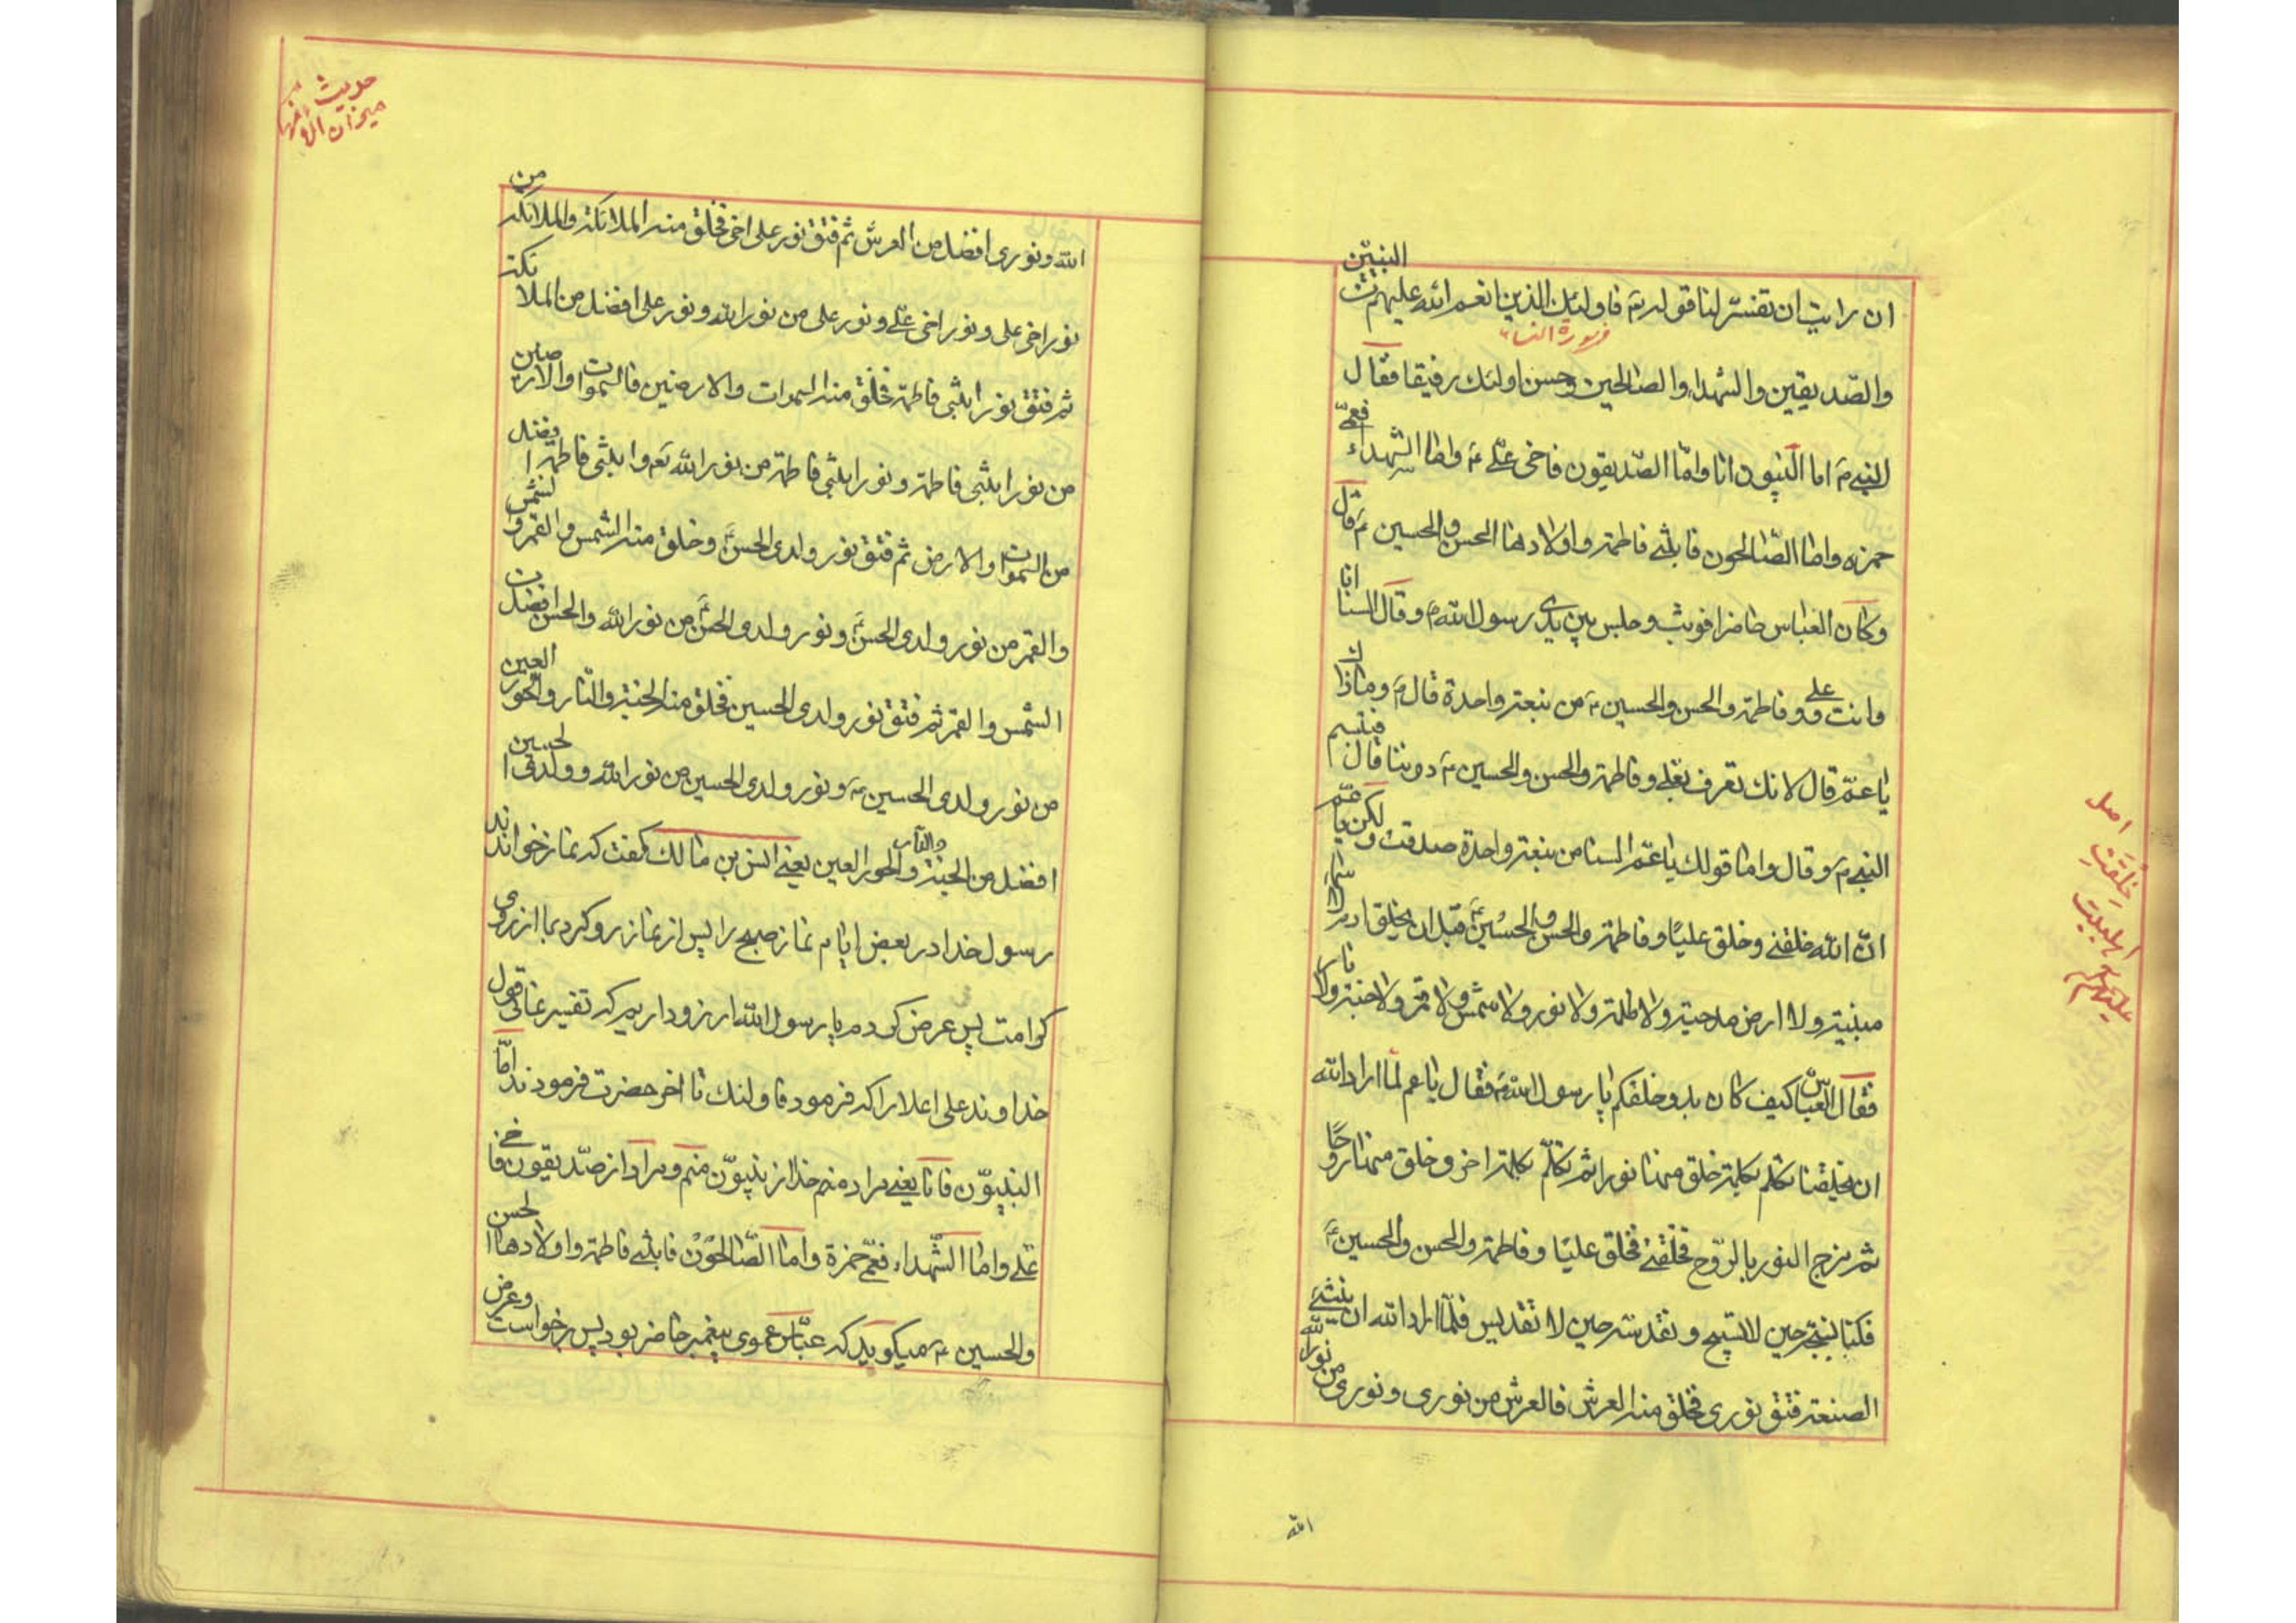 ان رایت ان تفسّر لنا قوله تم فاولئک الذین انعم الله علیهم من النبیّن
فی سورة النساء
والصّدیقین والشهداء والصالحین وحسن اولئک رفیقا فقال
النبی ص اما النبیون انا وامّا الصّدیقون فاخی علی ع واما الشهداء فعمّی
حمزه واما الصّالحون فابنتی فاطمة واولادها الحسن والحسین ع قال
وکان العباس حاضرا فوثب وجلس بین یدی رسول الله ص وقال السنا انا
وانت وعلی وفاطمة والحسن والحسین ع من نبعة واحدة قال ص وما ذاک
یا عمّ قال لانک تعرف بعلی وفاطمة والحسن والحسین ع دوننا قال فتبسم
النبی ص وقال واما قولک یا عمّ السنا من نبعة واحدة صدقت ولکن یا عم
انّ الله خلقنی وخلق علیّا وفاطمة والحسن والحسین ع قبل ان یخلق ادم
مبنیة ولا ارض مدحیة ولا ظلمة ولا نور ولا شمس ولا قمر ولا جنة ولا نار
فقال العباس کیف کان بدو خلقکم یا رسول الله ص فقال یا عم لمّا اراد الله
ان یخلقنا تکلم بکلمة خلق منها نورا ثم تکلّم بکلمة اخری وخلق منها روحًا
ثم مزج النور بالرّوح فخلقنی فخلق علیّا وفاطمة والحسن والحسین ع
فکنا نسبّحه حین لا تسبیح ونقدسه حین لا تقدیس فلمّا اراد الله ان ینشئ
الصنعة فتق نوری فخلق منه العرش فالعرش من نوری ونوری من نور الله
الله
اصل
خِلقَتِ
اهلبیت
علیهم
حدیث
میزان
الله ونوری افضل من العرش ثم فتق نور علی اخی فخلق منه الملائکة والملائکة من
نور اخی علی ونور اخی علی ونور علی من نور الله ونور علی افضل من الملائکة
ثم فتق نور ابنتی فاطمة فخلق منه السموات والارضین فالسموات والارضین
من نور ابنتی فاطمة ونور ابنتی فاطمة من نور الله تعم وابنتی فاطمة افضل
من السموات والارض ثم فتق نور ولدی الحسن ع وخلق منه الشمس والقمر والشمس
والقمر من نور ولدی الحسن ع ونور ولدی الحسن ع من نور الله والحسن افضل من
الشمس والقمر ثم فتق نور ولدی الحسین فخلق منه الجنة والنّار والحور العین
من نور ولدی الحسین ع ونور ولدی الحسین من نور الله وولدی الحسین
افضل من الجنة والنار والحور العین یعنی انس بن مالک گفت که نماز خواندند
رسول خدا در بعض ایام نماز صبح را پس از نماز رو کرد بما از روی
کرامت پس عرض کردم یا رسول الله ارزو داریم که تفسیر قول
خداوند علی اعلا را که فرمود فاولئک تا اخر حضرت فرمودند امّا
النبیّون فانا یعنی مراد از نبیّون منم ومراد از صدّیقون فاخی
علی واما الشهداء فعمّی حمزة واما الصّالحون فابنتی فاطمة واولادها الحسن
والحسین ع میگوید که عبّاس عموی پیغمبر حاضر بود پس برخواست وعرض